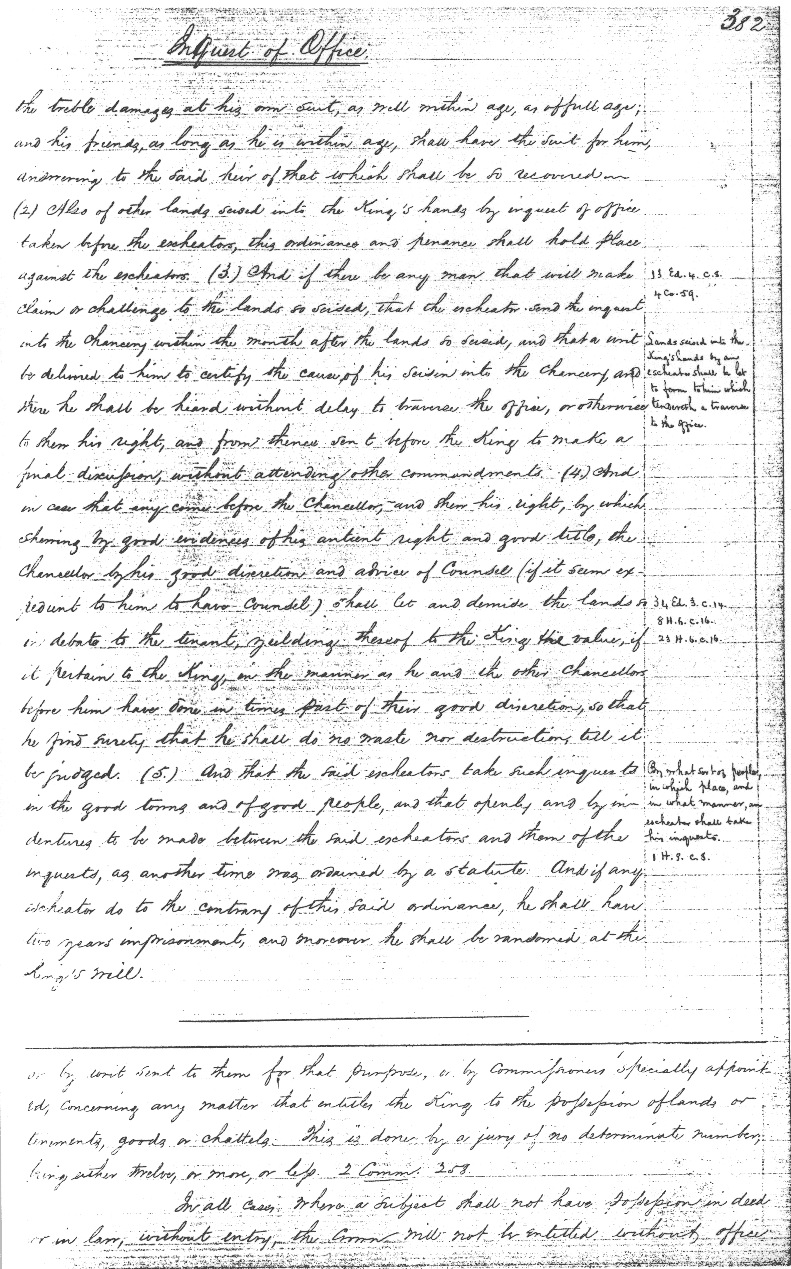 382
InQuest of Office.
the treble damages at his own suit, as well within age, as of full age;
and his friends, as long as he is within age, shall have the suit for him,
answering to the said heir of that which shall be so recovered
(2) Also of other lands seised into the King's hands by inquest of office
taken before the escheators, this ordinance and penance shall hold place
against the escheators. (3.) And if there be any man that will make
claim or challenge to the lands so seised, that the escheator send the inquest
into the Chancery within the month after the lands so seised, and that a writ
be delivered to him to certify the cause of his seisin into the Chancery, and
there he shall be heard without delay to traverse the office, or otherwise
to shew his right, and from thence sent before the King to make a
final discussion, without attending other commandments. (4.) And
in case that any come before the Chancellor, and shew his right, by which
shewing by good evidences of his antient right and good title, the
Chancellor by his good discretion and advice of Counsel (if it seem ex-
pedient to him to have Counsel) shall let and demise the lands so
in debate to the tenant, yeilding thereof to the King the value, if
it pertain to the King, in the manner as he and the other Chancellors
before him have done in times past of their good discretion, so that
he find surety that he shall do no waste nor destruction, till it
be judged. (5.) And that the said escheators take such inquests
in the good towns and of good people, and that openly and by in-
dentures to be made between the said escheators and them of the
inquests, as another time was ordained by a statute. And if any
escheator do to the contrary of this said ordinance, he shall have
two years imprisonment, and moreover he shall be ransomed at the
King's will.
13 Ed. 4. c. 8.
4 Co. 59.
Lands seised into the
King's hands by an
escheator shall be let
to farm to him which
tendereth a traverse
to the office.
34 Ed. 3. c. 14.
8 H. 6. c. 16.
23 H. 6. c. 16.
By what sort of people,
in which place, and
in what manner, an
escheator shall take
his inquests.
1 H. 8. c. 8.
or by writ sent to them for that purpose, or by commissioners specially appoint
ed, concerning any matter that entitles the King to the possession of lands or
tenements, goods or chattels. This is done by a jury of no determinate number;
being either twelve, or more, or less. 2 Comm. 258
In all cases where a subject shall not have possession in deed
or in law, without entry, the Crown will not be entitled without office